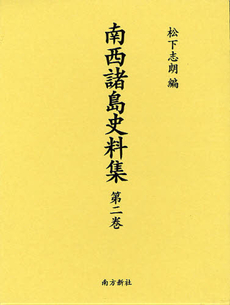 松下志朗 編
南西諸島史料集
第二巻
南方新社